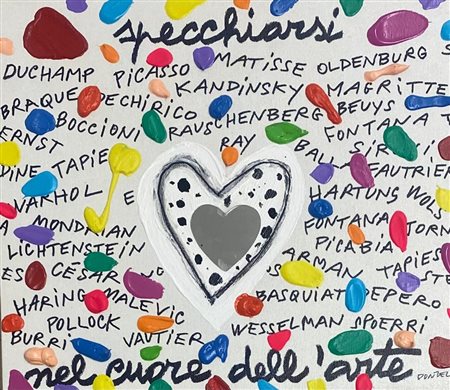 specchiarsi
DUCHAMP PICASSO MATISSE OLDENBURG
BRAQUE DECHIRICO KANDINSKY MAGRITTE
BOCCIONI RAUSCHENBERG BEUYS
ERNST RAY BALLA FONTANA
DINE TAPIE FAUTRIER
WARHOL HARTUNG WOLS
MONDRIAN FONTANA
LICHTENSTEIN PICABIA
CÉSAR ARMAN TAPIES
HARING MALEVIC BASQUIAT DEPERO
POLLOCK WESSELMAN SPOERRI
BURRI VAUTIER
nel cuore dell'arte